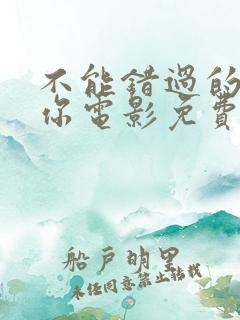 不能错过的
你电影免費
船戸明里
未经同意禁止转载